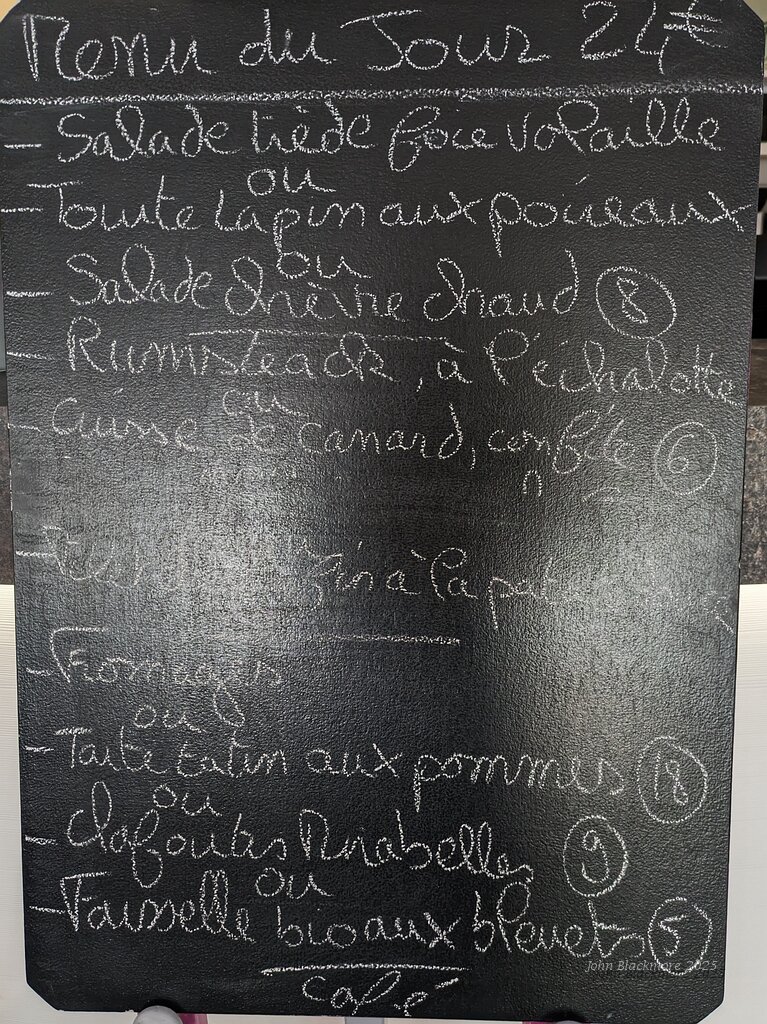 Menu du Jour 24€
- Salade tiède foie volaille
ou
- Tourte Lapin aux poireaux
ou
- Salade chèvre chaud 8
- Rumsteack, à l'échalotte
ou
- Cuisse de canard, confite 6
fin à la
- Fromages
ou
- Tarte tatin aux pommes 18
ou
- Clafoutis Mirabelles 9
ou
- Faisselle bio aux bleuets 5
café
John Blackmore 2025